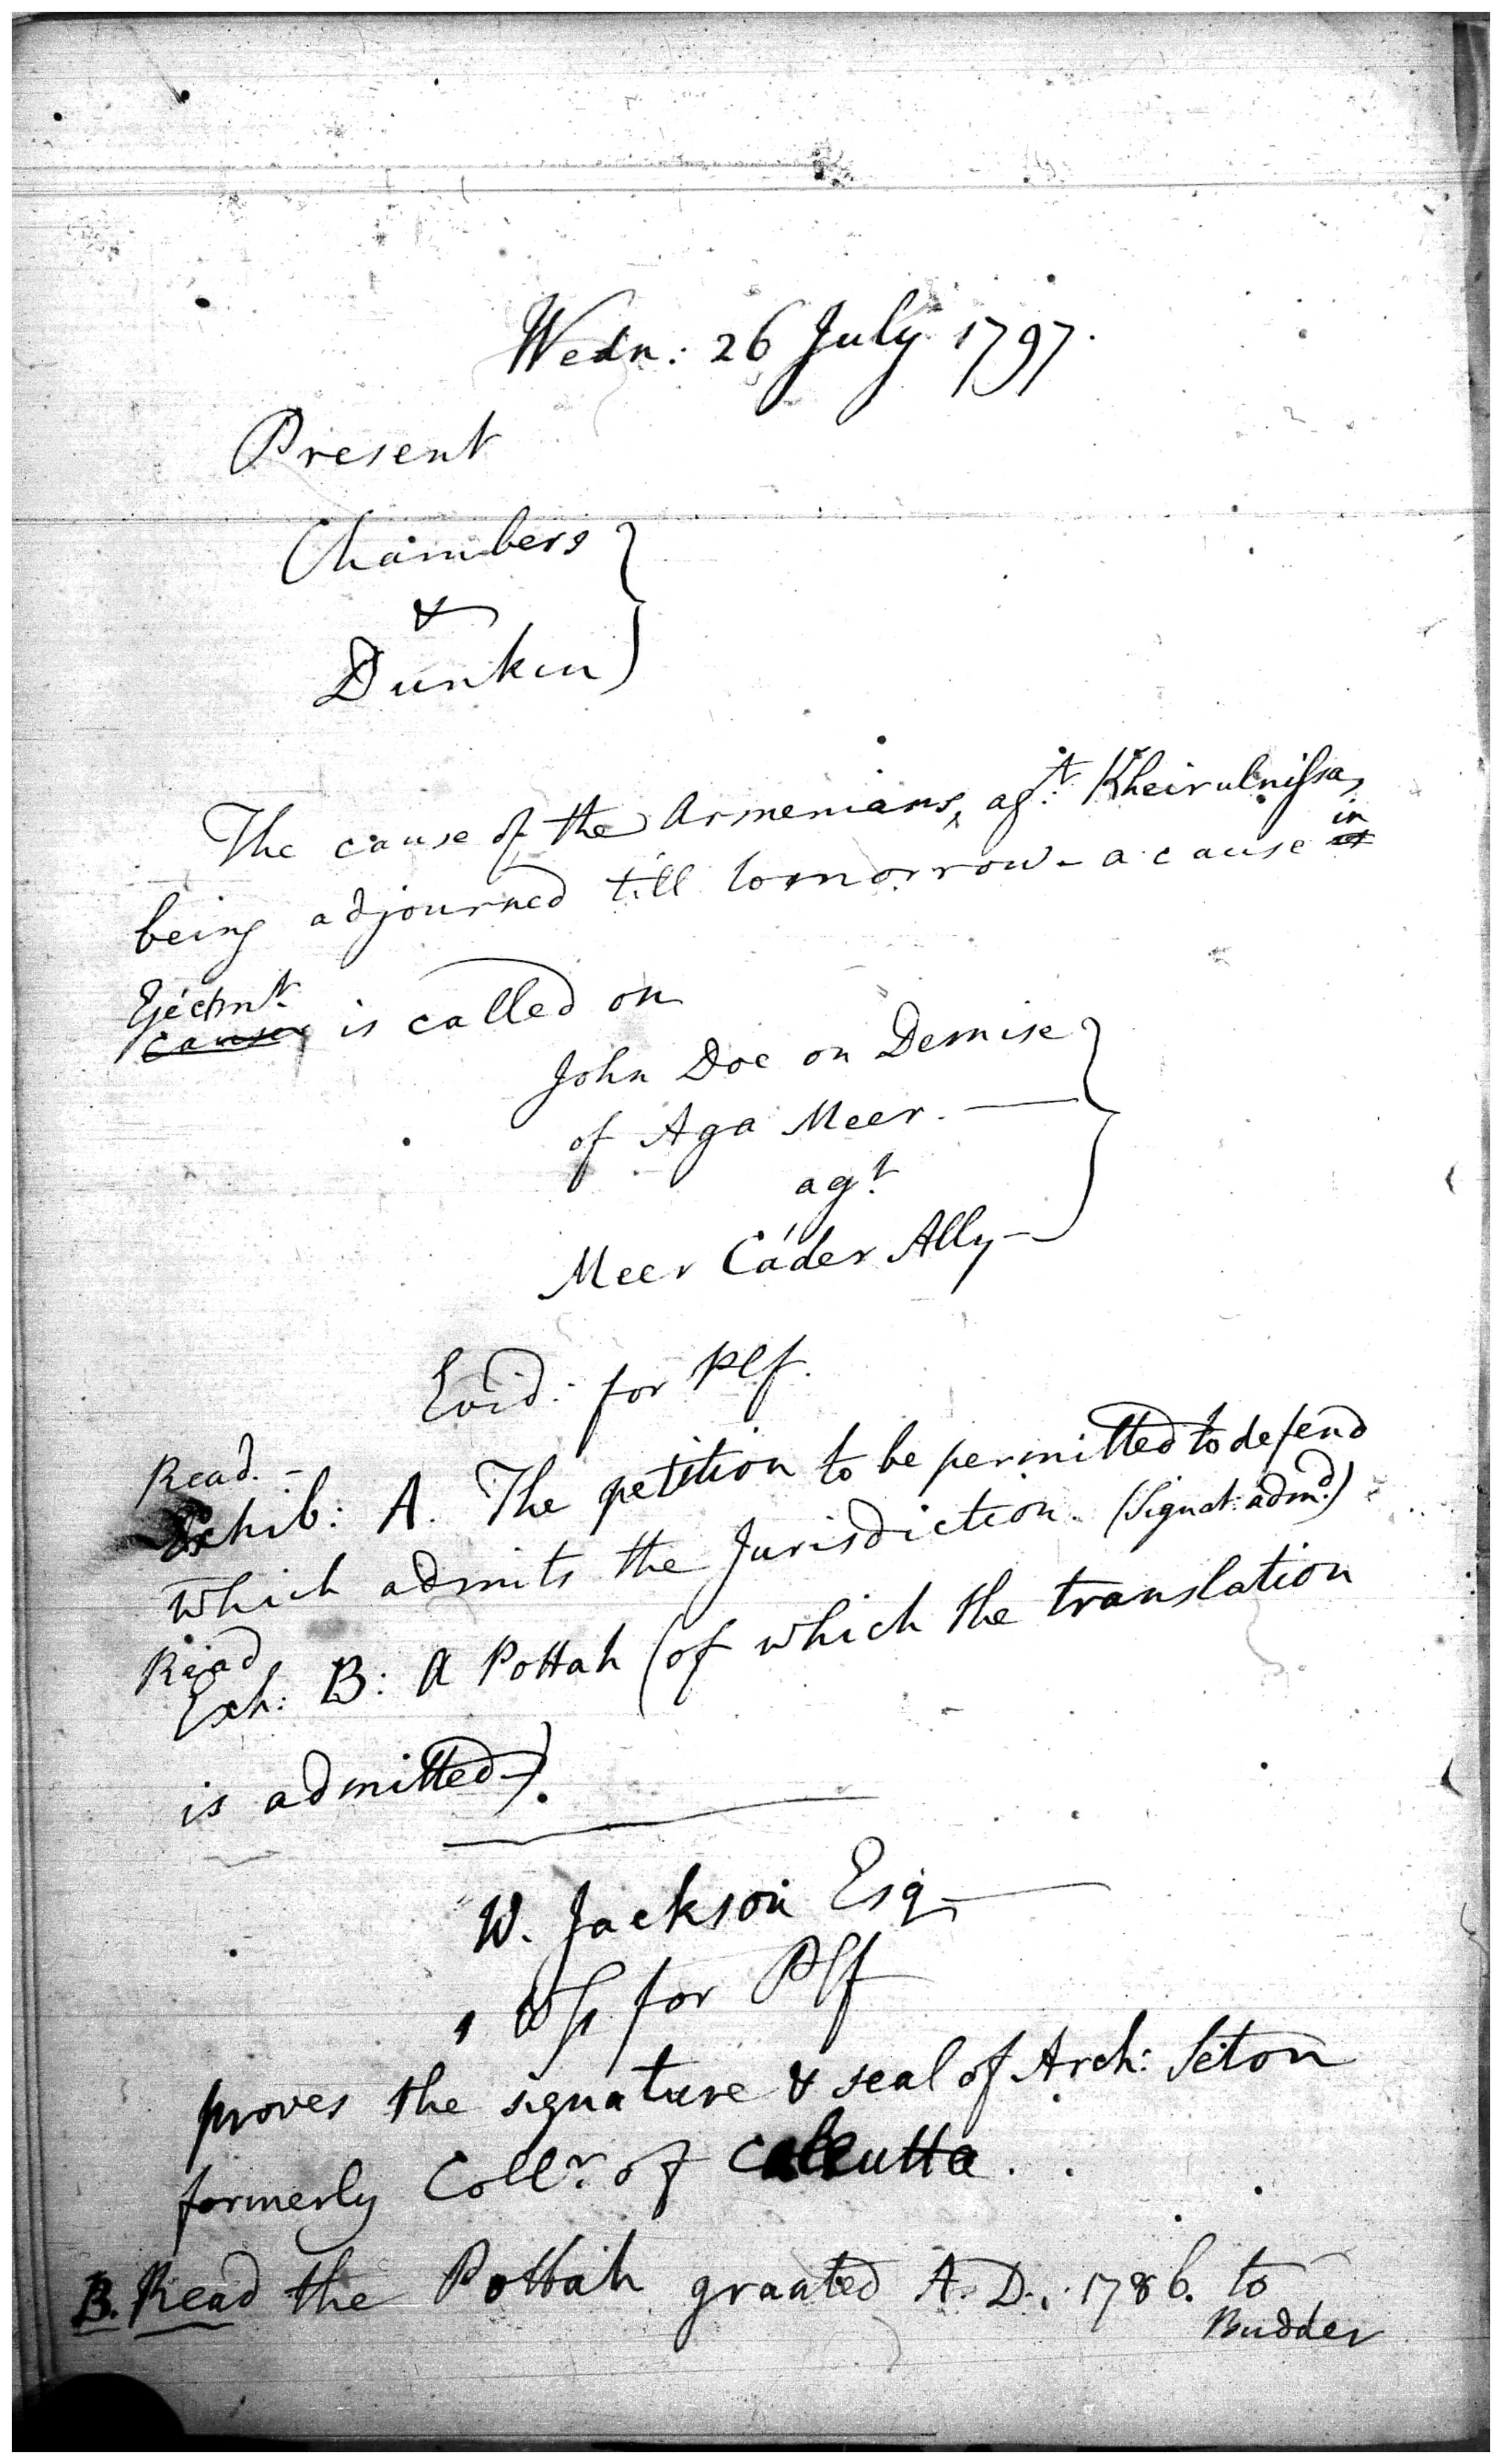 Wedn: 26 July 1797.
Present
Chambers
&
Dunkin
The cause of the Armenians, agt. Kheirulnissa,
being adjourned till tomorrow - a cause in
Ejectmt. is called on
John Doe on Demise
of Aga Meer. —
agt.
Meer Cáder Ally —
Evid: for Plf.
Read. -
Exhib: A. The petition to be permitted to defend
which admits the Jurisdiction. (Signat: admd.)
Read
Exh: B: A Pottah (of which the translation
is admitted -).
W. Jackson Esq
Wss. for Plf
proves the signature & seal of Arch: Seton
formerly Collr. of Calcutta.
B. Read the Pottah granted A.D.: 1786. to
Budder